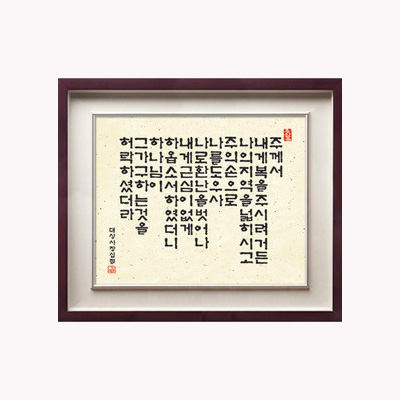 주께서
내게복을주시려거든
나의지역을넓히시고
주의손으로
나를도우사
나로환난을벗어나
내게근심이없게
하옵소서하였더니
하나님이
그가구하는것을
허락하셨더라
대상사장십절